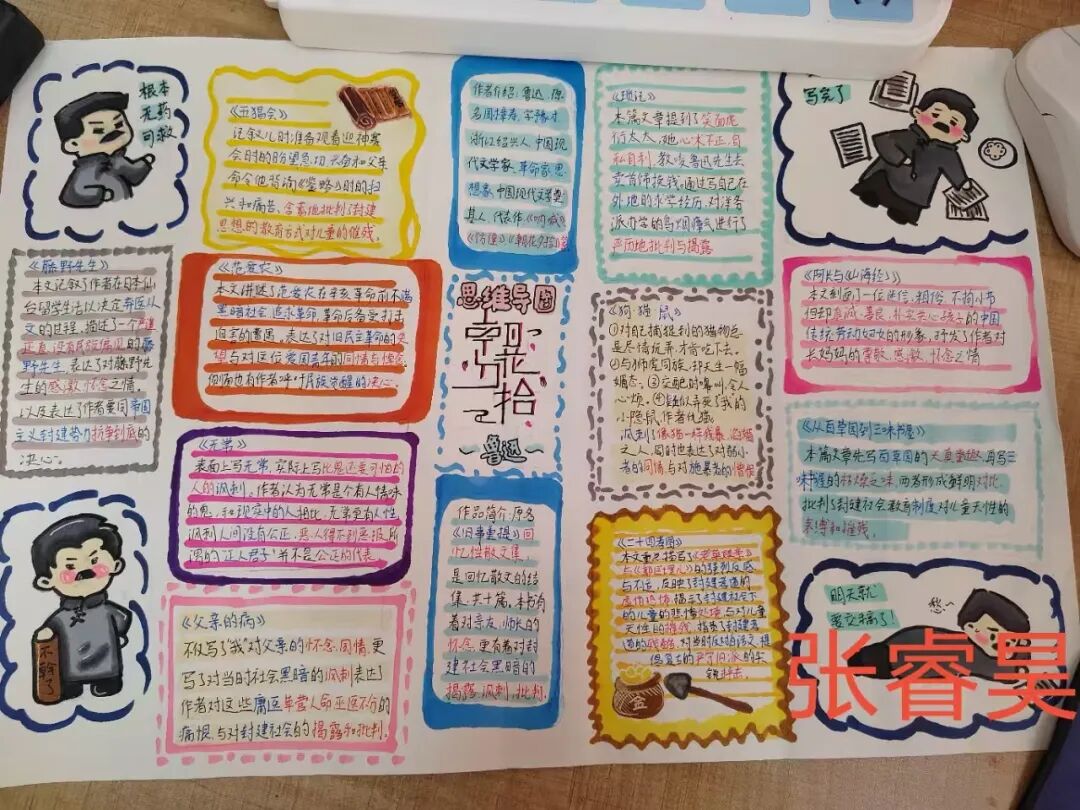 根本
无药
可救
《五猖会》
记叙儿时准备观看迎神赛
会时的盼望急切、兴奋和父亲
命令他背诵《鉴略》时的扫
兴和痛苦、含蓄地批判了封建
思想的教育方式对儿童的摧残。
作者介绍:鲁迅,原
名周樟寿,字豫才
浙江绍兴人,中国现
代文学家、革命家、思
想家,中国现代文学奠
基人。代表作《呐喊》
《彷徨》《朝花夕拾》等
《琐记》
本篇文章提到了笑面虎
衍太太,她心术不正,自
私自利,教唆鲁迅先生去
卖首饰换钱。通过写自己在
外地的求学经历,对洋务
派办学的乌烟瘴气进行了
严厉地批判与揭露
写完了
《藤野先生》
本文记叙了作者在日本仙
台留学生活以决定弃医从
文的过程,描述了一个严谨
正直,没有民族偏见的藤
野先生,表达了对藤野先
生的感激、怀念之情。
以及表达了作者要同帝国
主义封建势力抗争到底的
决心。
《范爱农》
本文讲述了范爱农在辛亥革命前不满
黑暗社会,追求革命,革命后备受打击
迫害的遭遇,表达了对旧民主革命的失
望与对这位爱国青年的同情与惋惜
但师也有作者呼吁民族觉醒的决心。
思维导图
朝花夕拾
~鲁迅~
《狗·猫·鼠》
①对自己捕捉到的猎物总
是尽情玩弄,才肯吃下去。
②与狮虎同族,却天生一幅
媚态。③交配时嗥叫,令人
心烦。④疑似弄死了我的
小隐鼠,作者仇猫。
讽刺了像猫一样残暴、谄媚
之人,同时也表达了对弱小
者的同情与对施暴者的憎恨
《阿长与《山海经》》
本文刻画了一位迷信、粗俗、不拘小节
但却真诚、善良、朴实关心孩子的中国
传统劳动妇女的形象,抒发了作者对
长妈妈的崇敬、感激、怀念之情
《无常》
表面上写无常,实际上写比鬼还要可怕的
人的讽刺。作者认为无常是个有人情味
的鬼,和现实中的人相比,无常更有人性
讽刺人间没有公正,恶人得不到恶报,所
谓的"正人君子"并不是公正的代表。
《从百草园到三味书屋》
本篇文章先写百草园的天真童趣,再写三
味书屋的枯燥之味,两者形成鲜明对比,
批判了封建社会教育制度对儿童天性的
束缚和摧残。
作品简介:原名
《旧事重提》回
忆性散文集。
是回忆散文的结
集,共十篇。本书有
着对亲友、师长的
怀念,更有着对封
建社会黑暗的
揭露、讽刺、批判。
《二十四孝图》
本文重点描写了《老莱娱亲》
与《郭巨埋儿》的强烈反感
与不足,反映了封建孝道的
不干了
《父亲的病》
不仅写了"我"对父亲的怀念、同情,更
写了对当时社会黑暗的讽刺,表达了
作者对这些庸医草菅人命巫医不分的
痛恨,与对封建社会的揭露和批判。
明天就
要交稿了!
愁~
张睿昊